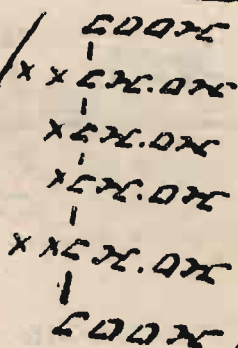 COOH
x x CH.OH
x CH.OH
x CH.OH
x x CH.OH
COOH